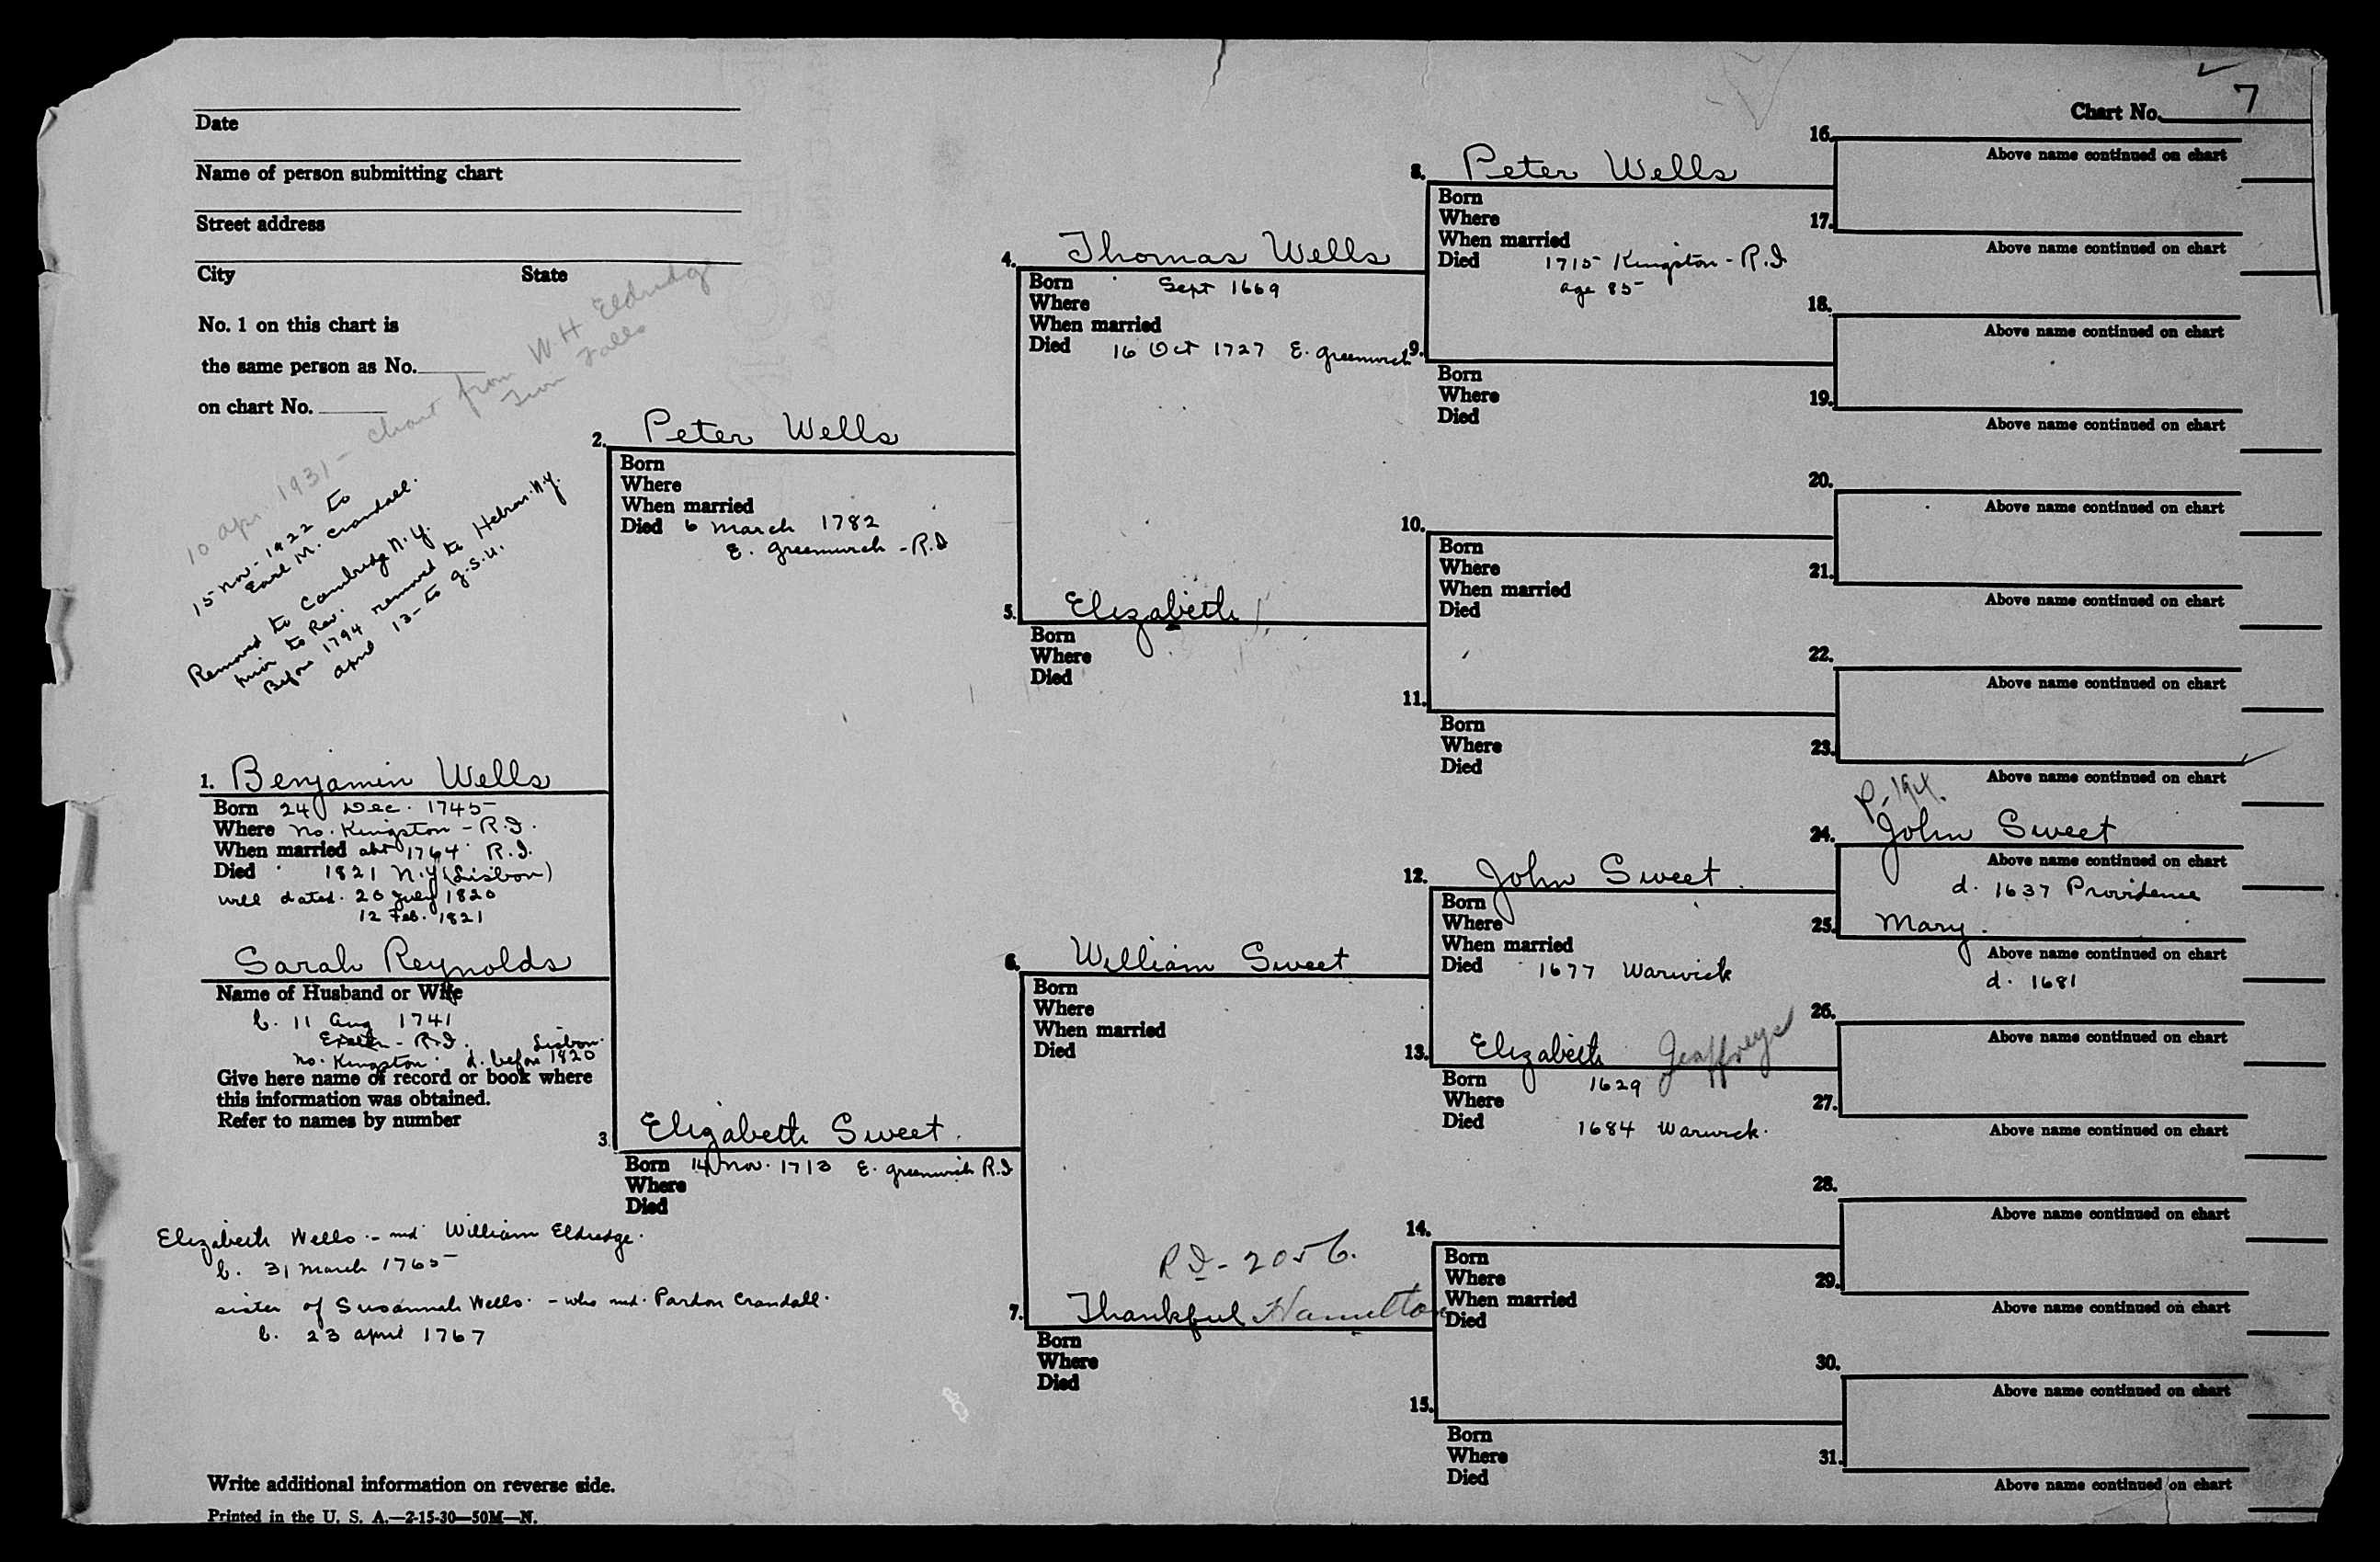 Chart No. 7
Date
Name of person submitting chart
Street address
City State
No. 1 on this chart is
the same person as No.
on chart No.
10 Apr. 1931 - chart from W H Eldredge
Twin Falls
15 Nov - 1922 to
Earl M. Crandall.
Removed to Cambridge N.Y.
prior to Rev.
Before 1794 removed to Hebron. N.Y.
April 13 - to G.S.U.
1. Benjamin Wells
Born 24 Dec. 1745
Where No. Kingston - R.I.
When married abt 1764 R.I.
Died 1821 N.Y (Lisbon)
will dated. 20 July 1820
12 Feb. 1821
Sarah Reynolds
Name of Husband or Wife
b. 11 Aug 1741
Exeter - R.I. Lisbon.
No. Kingston d. before 1820
Give here name of record or book where
this information was obtained.
Refer to names by number
Elizabeth Wells - md William Eldredge.
b. 31 March 1765
sister of Susannah Wells - who md. Pardon Crandall.
b. 23 April 1767
Write additional information on reverse side.
Printed in the U. S. A.—2-15-30—50M—N.
2. Peter Wells
Born
Where
When married
Died 6 March 1782
E. Greenwich - R.I
3. Elizabeth Sweet.
Born 14 Nov. 1713 E. Greenwich R.I
Where
Died
4. Thomas Wells
Born Sept 1669
Where
When married
Died 16 Oct 1727 E. Greenwich
5. Elizabeth
Born
Where
Died
6. William Sweet
Born
Where
When married
Died
RI - 2056.
7. Thankful Hamilton
Born
Where
Died
8. Peter Wells
Born
Where
When married
Died 1715 Kingston - R.I
age 85
9.
Born
Where
Died
10.
Born
Where
When married
Died
11.
Born
Where
Died
12. John Sweet.
Born
Where
When married
Died 1677 Warwick
13. Elizabeth Geaffreys
Born 1629
Where
Died 1684 Warwick.
14.
Born
Where
When married
Died
15.
Born
Where
Died
16.
Above name continued on chart
17.
Above name continued on chart
18.
Above name continued on chart
19.
Above name continued on chart
20.
Above name continued on chart
21.
Above name continued on chart
22.
Above name continued on chart
23.
Above name continued on chart
24. John Sweet
Above name continued on chart
d. 1637 Providence
25. Mary.
Above name continued on chart
d. 1681
26.
Above name continued on chart
27.
Above name continued on chart
28.
Above name continued on chart
29.
Above name continued on chart
30.
Above name continued on chart
31.
Above name continued on chart